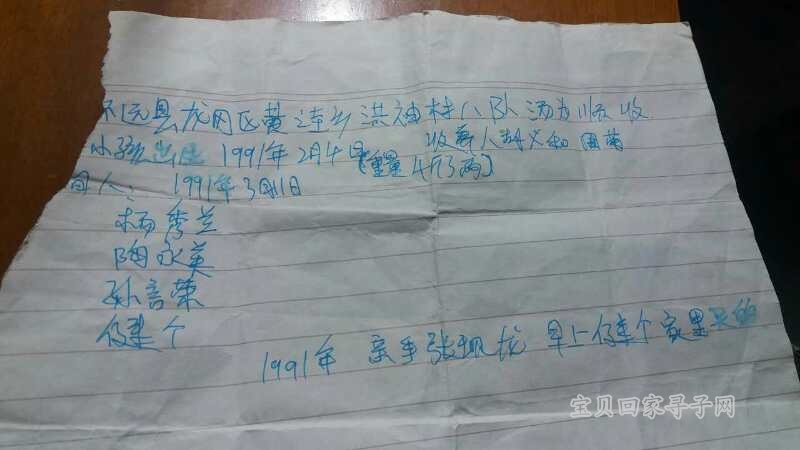 远县龙冈区黄连乡洪神村八队汤为顺收
收养人封义和 国菊
小孩出生 1991年2月4日【重量4斤3两】
日人: 1991年3月11日
杨秀兰
陶永英
孙言荣
个
1991年 亲手张佩龙 早上 个家里的
宝贝回家寻子网